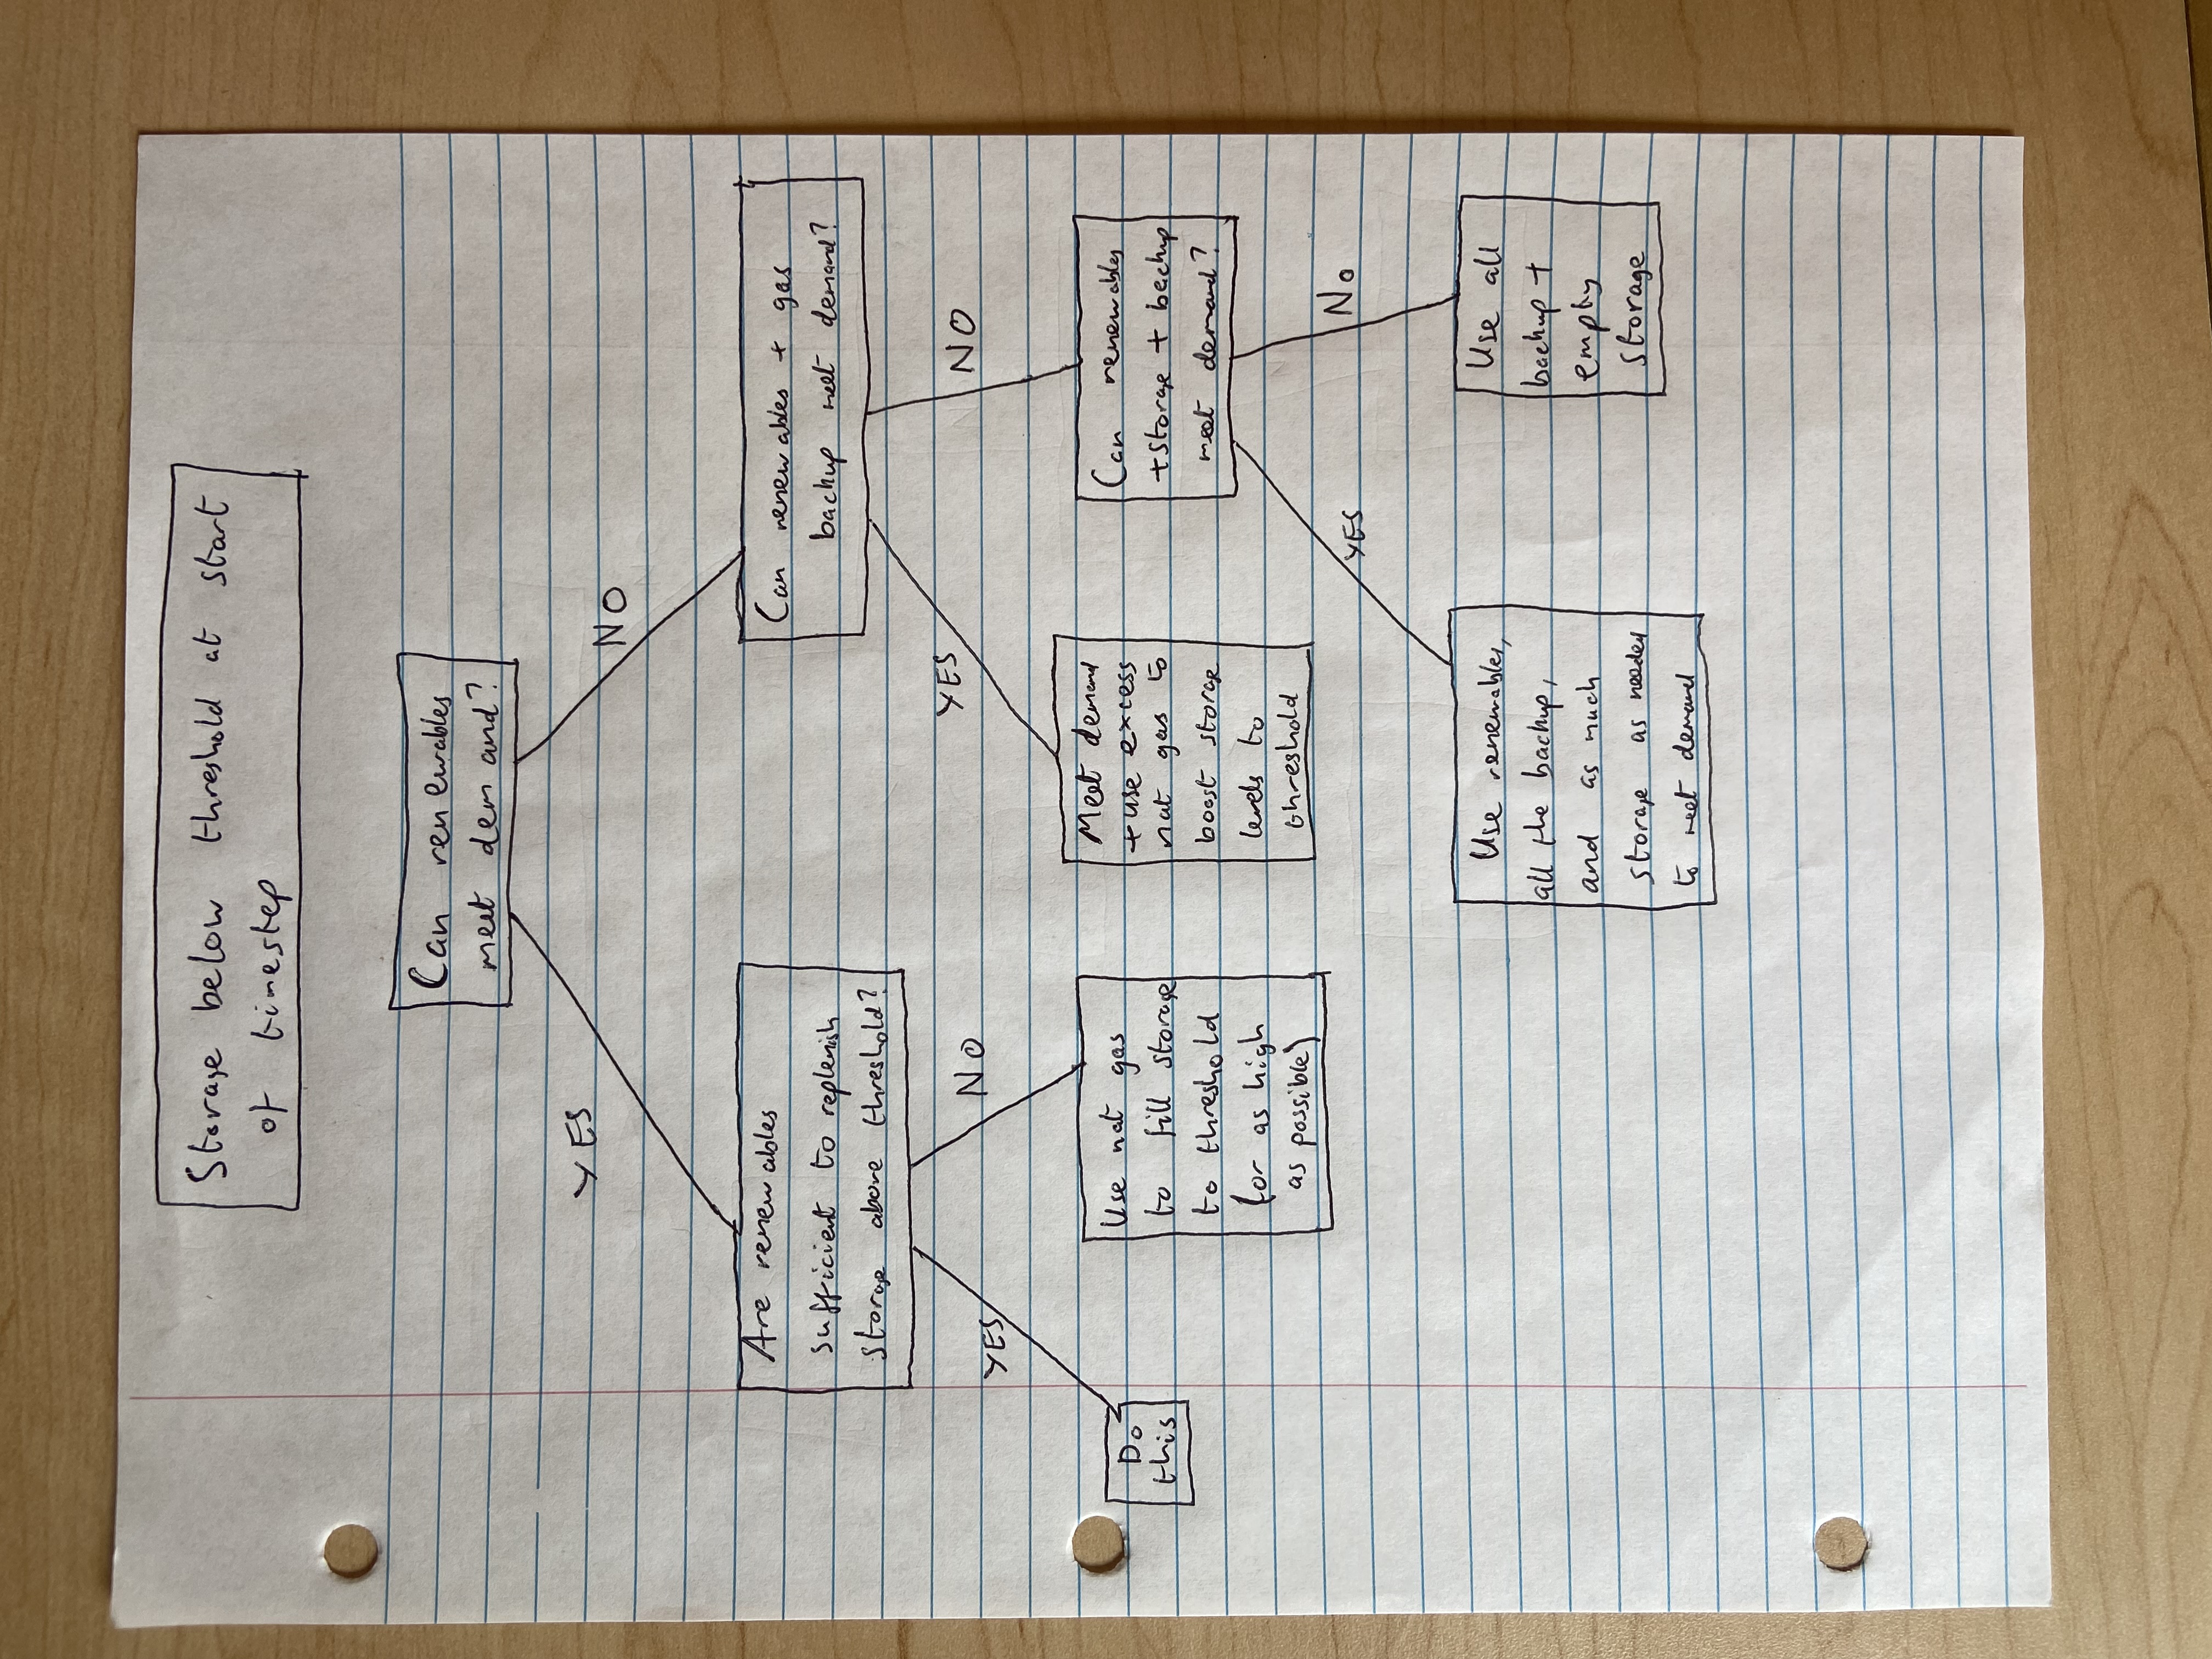 Storage below threshold at start
of timestep
Can renewables
meet demand?
YES
NO
Are renewables
sufficient to replenish
storage above threshold?
Can renewables + gas
backup meet demand?
YES
NO
YES
NO
Do
this
Use nat gas
to fill storage
to threshold
(or as high
as possible)
Meet demand
+ use excess
nat gas to
boost storage
levels to
threshold
Can renewables
+ storage + backup
meet demand?
YES
No
Use renewables,
all the backup,
and as much
storage as needed
to meet demand
Use all
backup +
empty
storage